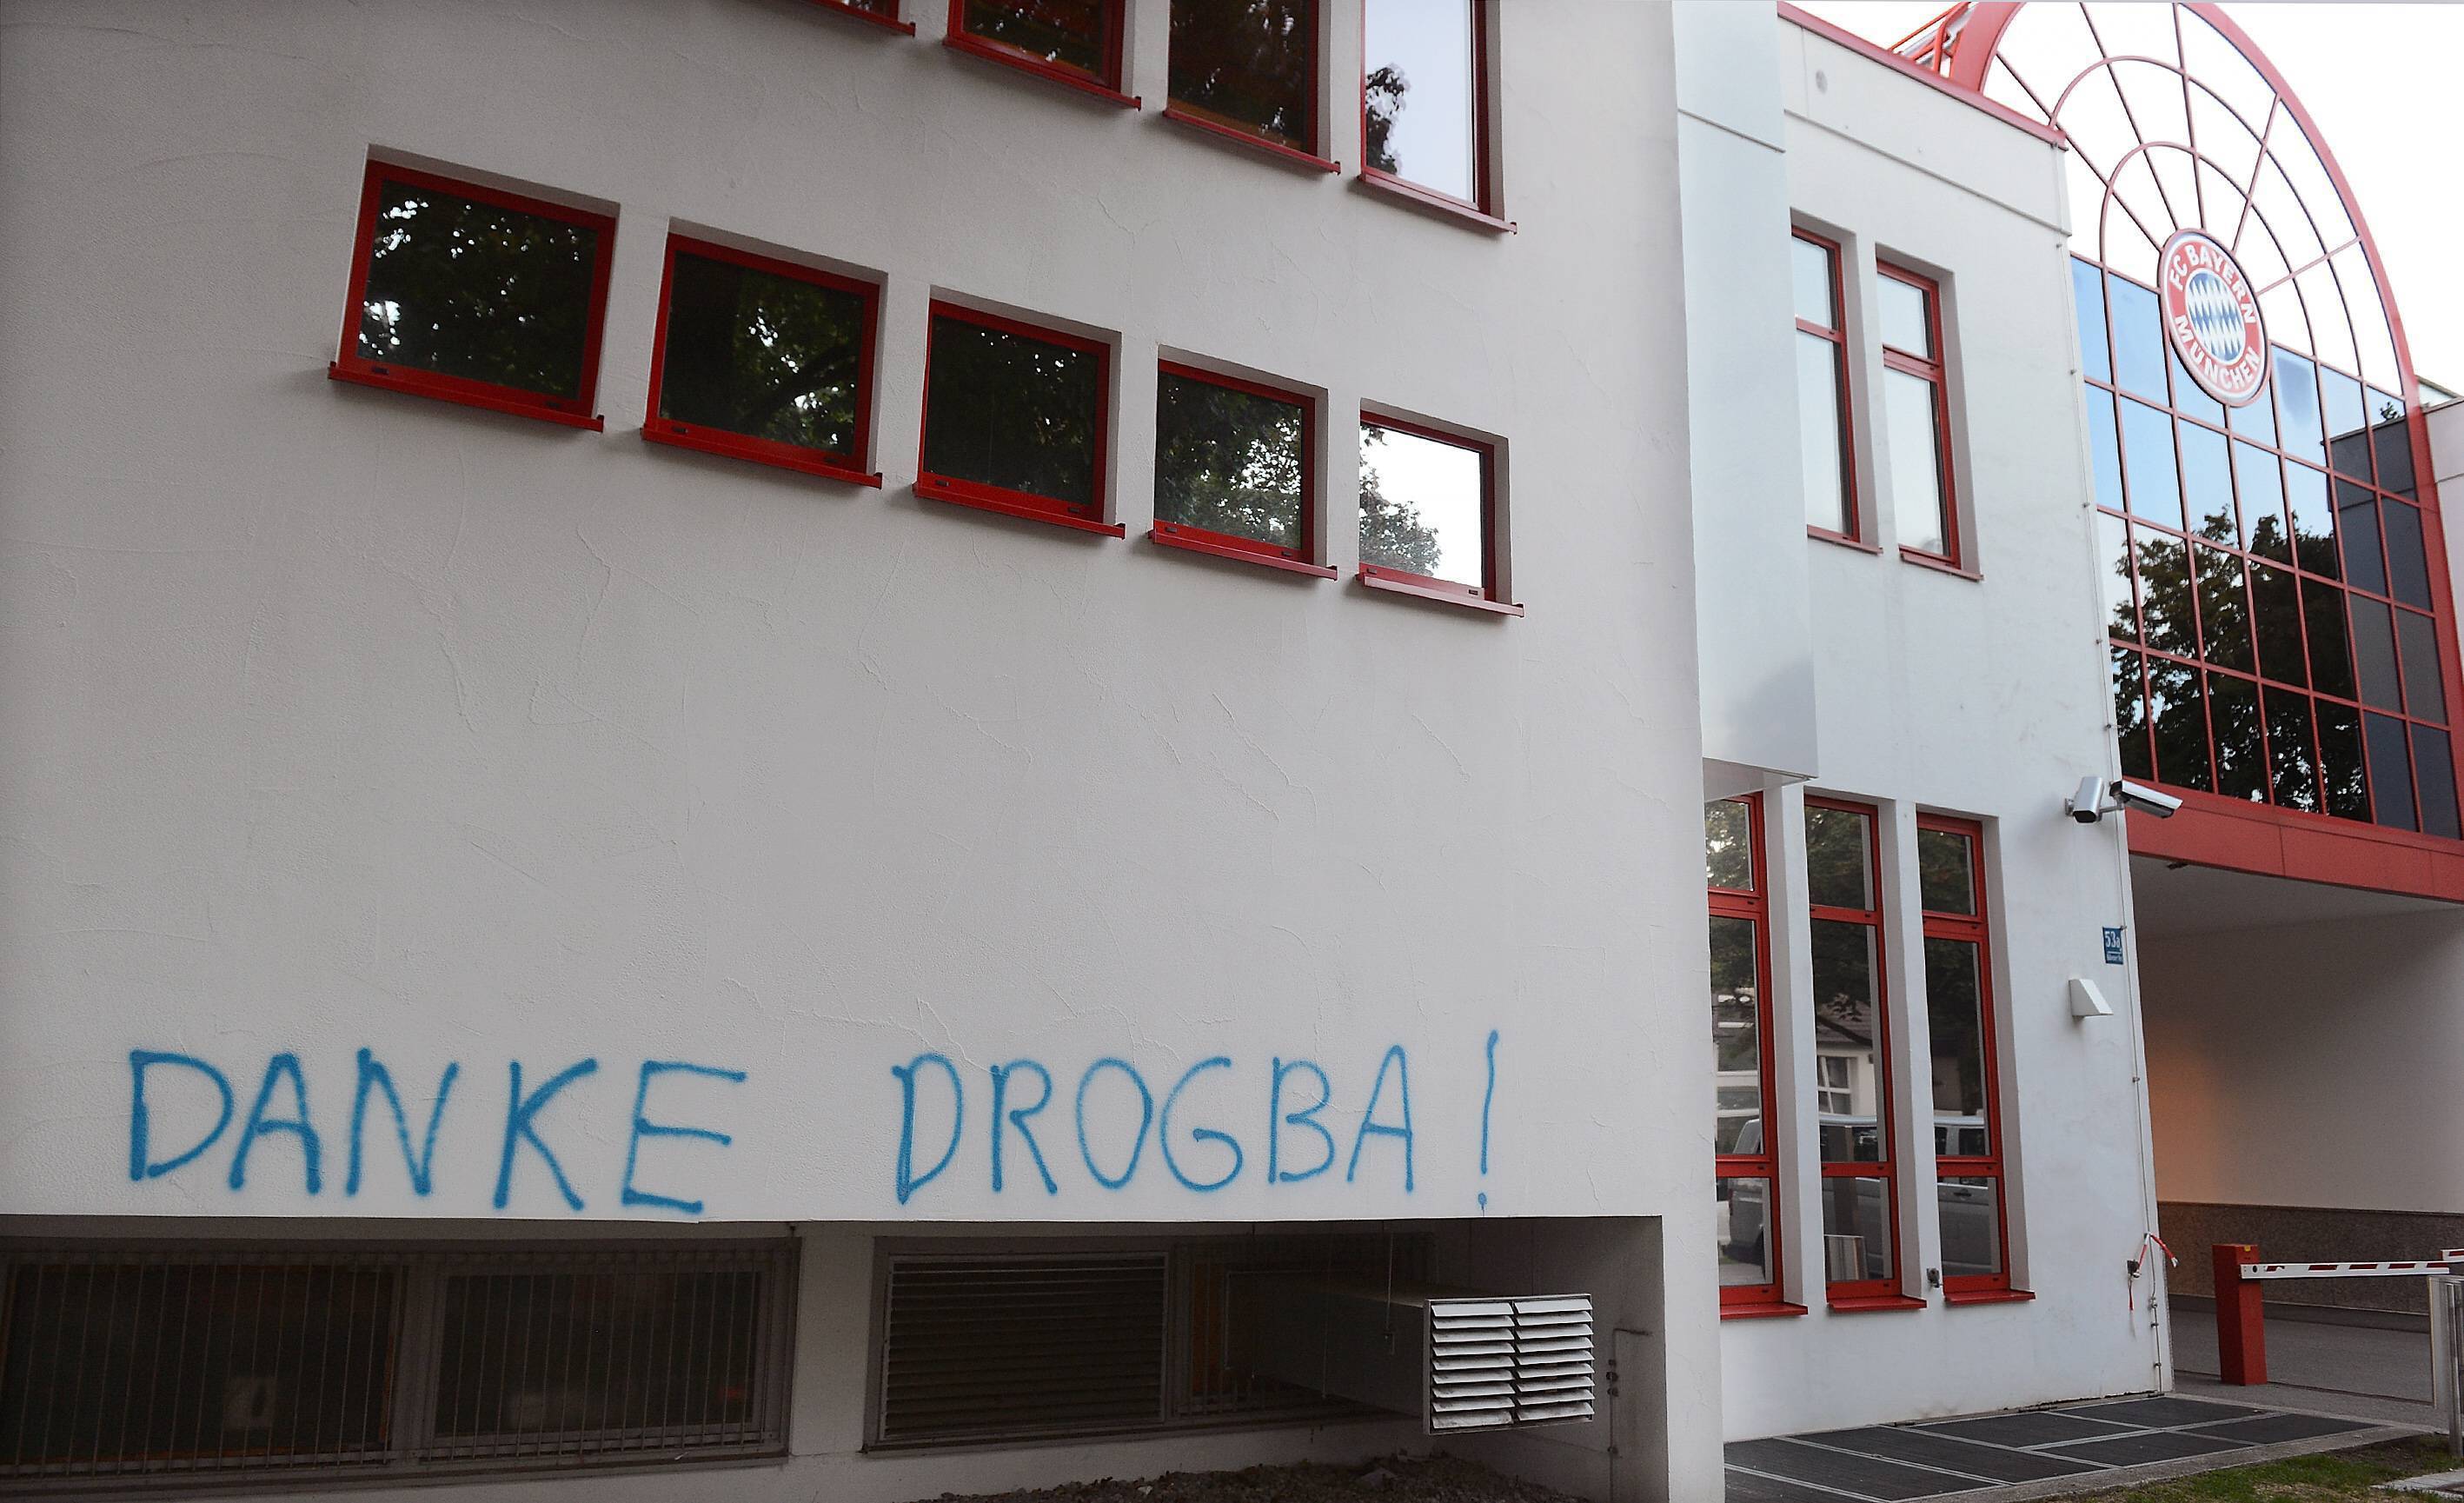 FC BAYERN
MÜNCHEN
53a
DANKE DROGBA!